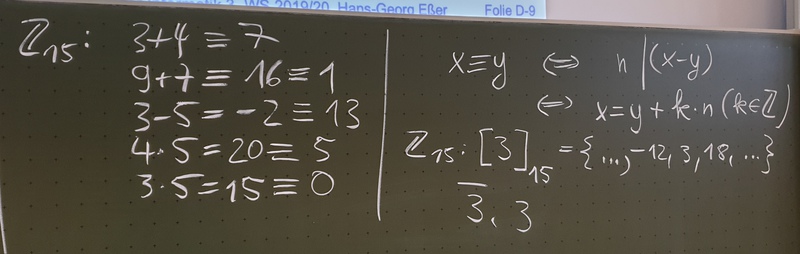 WS 2019/20, Hans-Georg Eßer Folie D-9
ℤ₁₅: 3+4 ≡ 7
9+7 ≡ 16 ≡ 1
3-5 = -2 ≡ 13
4·5 = 20 ≡ 5
3·5 = 15 ≡ 0
x≡y ⇔ n | (x-y)
⇔ x = y + k·n (k∈ℤ)
ℤ₁₅: [3]₁₅ = {..., -12, 3, 18, ...}
3̅, 3